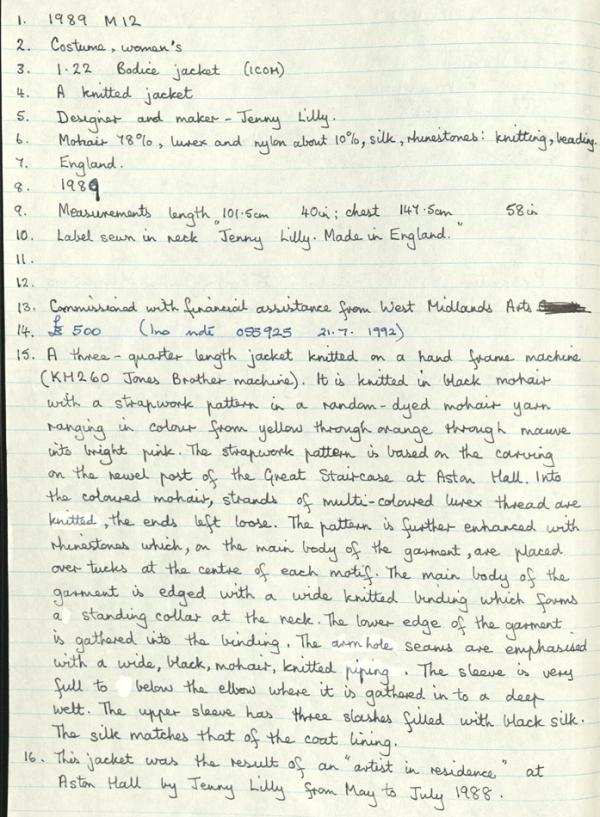 1. 1989 M12
2. Costume, women's
3. 1.22 Bodice jacket (ICOM)
4. A knitted jacket
5. Designer and maker - Jenny Lilly.
6. Mohair 78%, lurex and nylon about 10%, silk, rhinestones: knitting, beading.
7. England.
8. 1989
9. Measurements length 101.5cm 40in; chest 147.5cm 58in
10. Label sewn in neck "Jenny Lilly. Made in England."
11.
12.
13. Commissioned with financial assistance from West Midlands Arts
14. £500 (Ino mdi 055925 21.7.1992)
15. A three-quarter length jacket knitted on a hand frame machine
(KH260 Jones Brother machine). It is knitted in black mohair
with a strapwork pattern in a random-dyed mohair yarn
ranging in colour from yellow through orange through mauve
into bright pink. The strapwork pattern is based on the carving
on the newel post of the Great Staircase at Aston Hall. Into
the coloured mohair, strands of multi-coloured lurex thread are
knitted, the ends left loose. The pattern is further enhanced with
rhinestones which, on the main body of the garment, are placed
over tucks at the centre of each motif. The main body of the
garment is edged with a wide knitted binding which forms
a standing collar at the neck. The lower edge of the garment
is gathered into the binding. The armhole seams are emphasised
with a wide, black, mohair, knitted piping. The sleeve is very
full to below the elbow where it is gathered in to a deep
welt. The upper sleeve has three slashes filled with black silk.
The silk matches that of the coat lining.
16. This jacket was the result of an "artist in residence" at
Aston Hall by Jenny Lilly from May to July 1988.